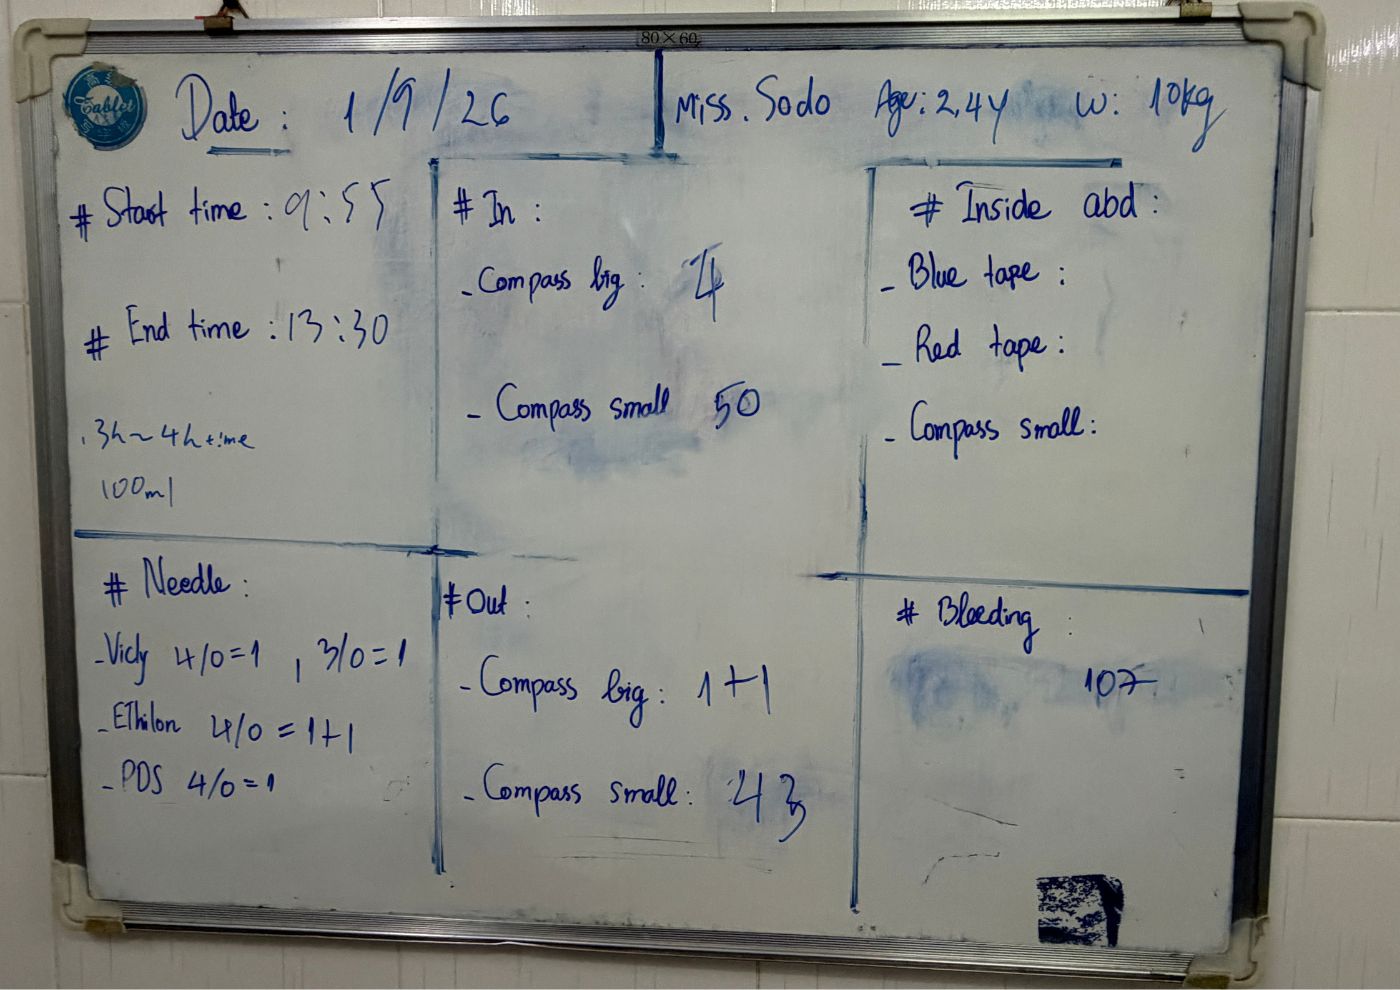 80×60
Date : 1/9/26
Miss. Sodo Age: 2,4Y W: 10kg
# Start time : 9:55
# End time : 13:30
3h~4h time
100ml
# In :
- Compass big : 4
- Compass small 50
# Inside abd :
- Blue tape :
- Red tape :
- Compass small :
# Needle :
- Vicly 4/0=1 , 3/0=1
- EThilon 4/0 = 1+1
- PDS 4/0=1
# Out :
- Compass big : 1+1
- Compass small : 43
# Bleeding :
107